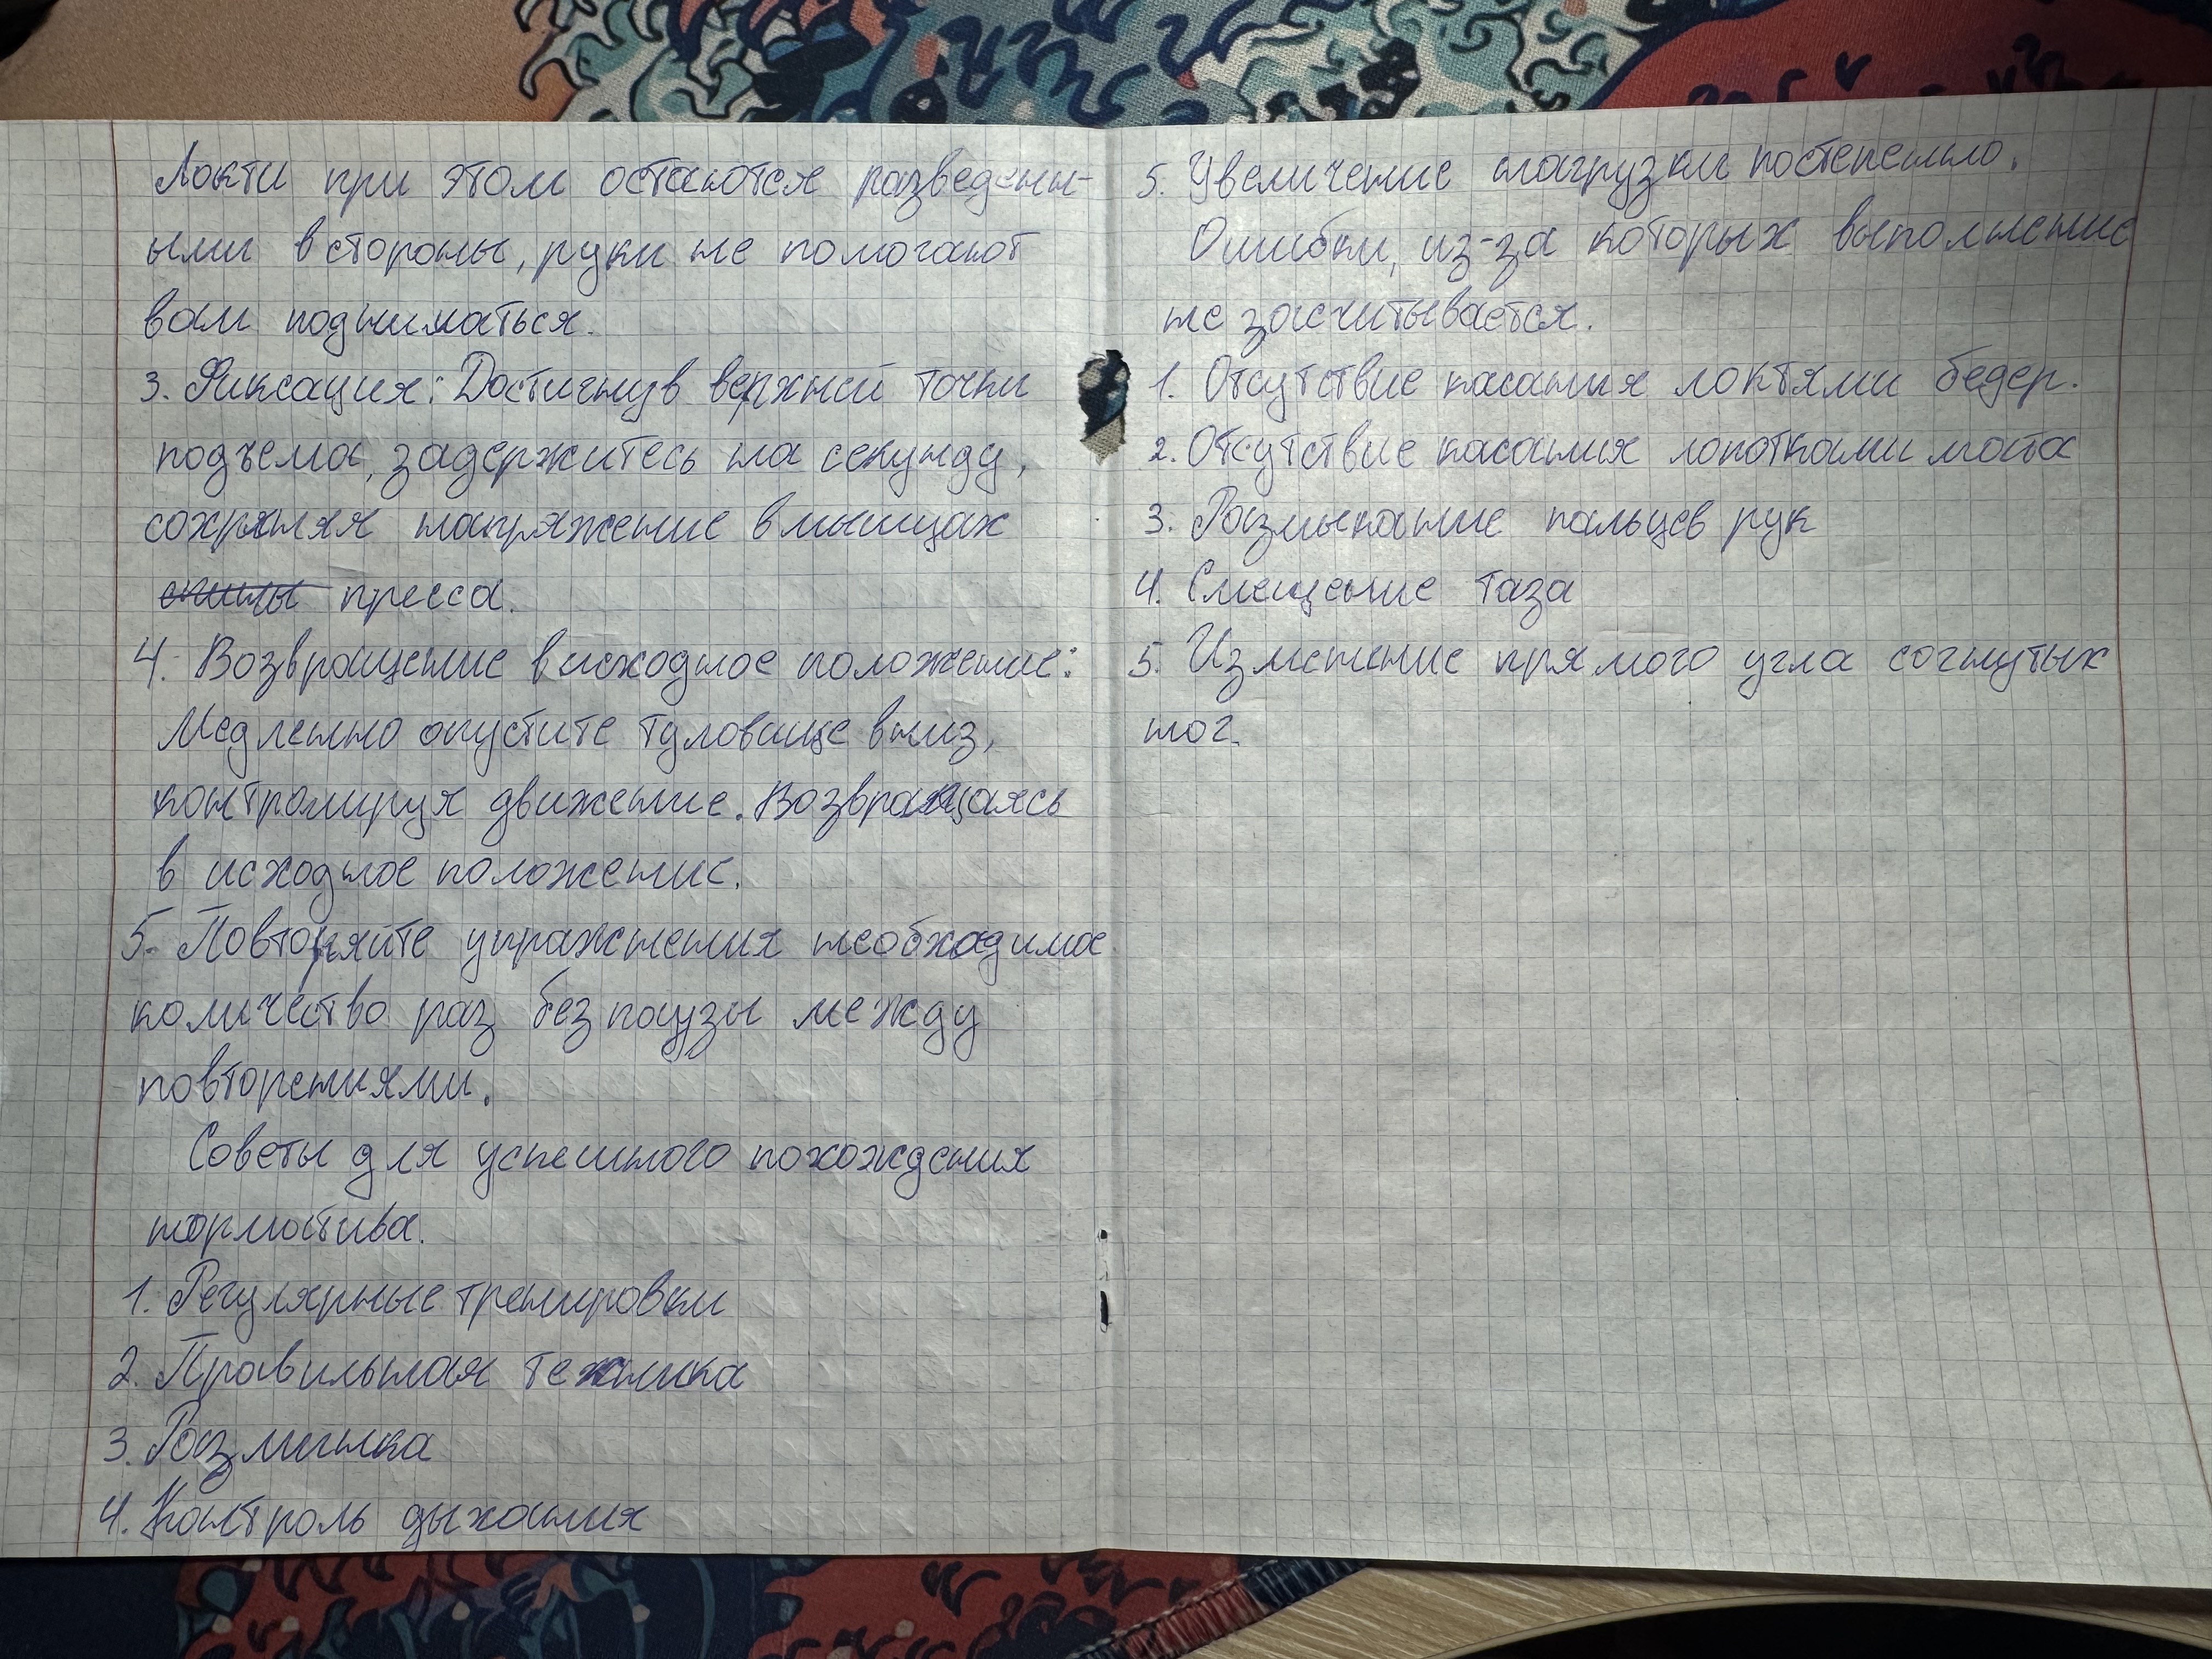 Локти при этом остаются разведенн-
ыми в стороны, руки не помогают
вам подниматься.
3. Фиксация: Достигнув верхней точки
подъема, задержитесь на секунду,
сохраняя напряжение в мышцах
спины пресса.
4. Возвращение в исходное положение:
Медленно опустите туловище вниз,
контролируя движение. Возвращаясь
в исходное положение.
5. Повторяйте упражнения необходимое
количество раз без паузы между
повторениями.
Советы для успешного похождения
норматива.
1. Регулярные тренировки
2. Правильная техника
3. Разминка
4. Контроль дыхания
5. Увеличение нагрузки постепенно.
Ошибки, из-за которых выполнение
не засчитывается.
1. Отсутствие касания локтями бедер.
2. Отсутствие касания лопатками мата
3. Размыкание пальцев рук
4. Смещение таза
5. Изменение прямого угла согнутых
ног.